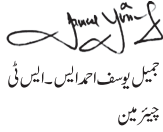 جمیل یوسف احمد ایس۔ایس ٹی
چیئرمین